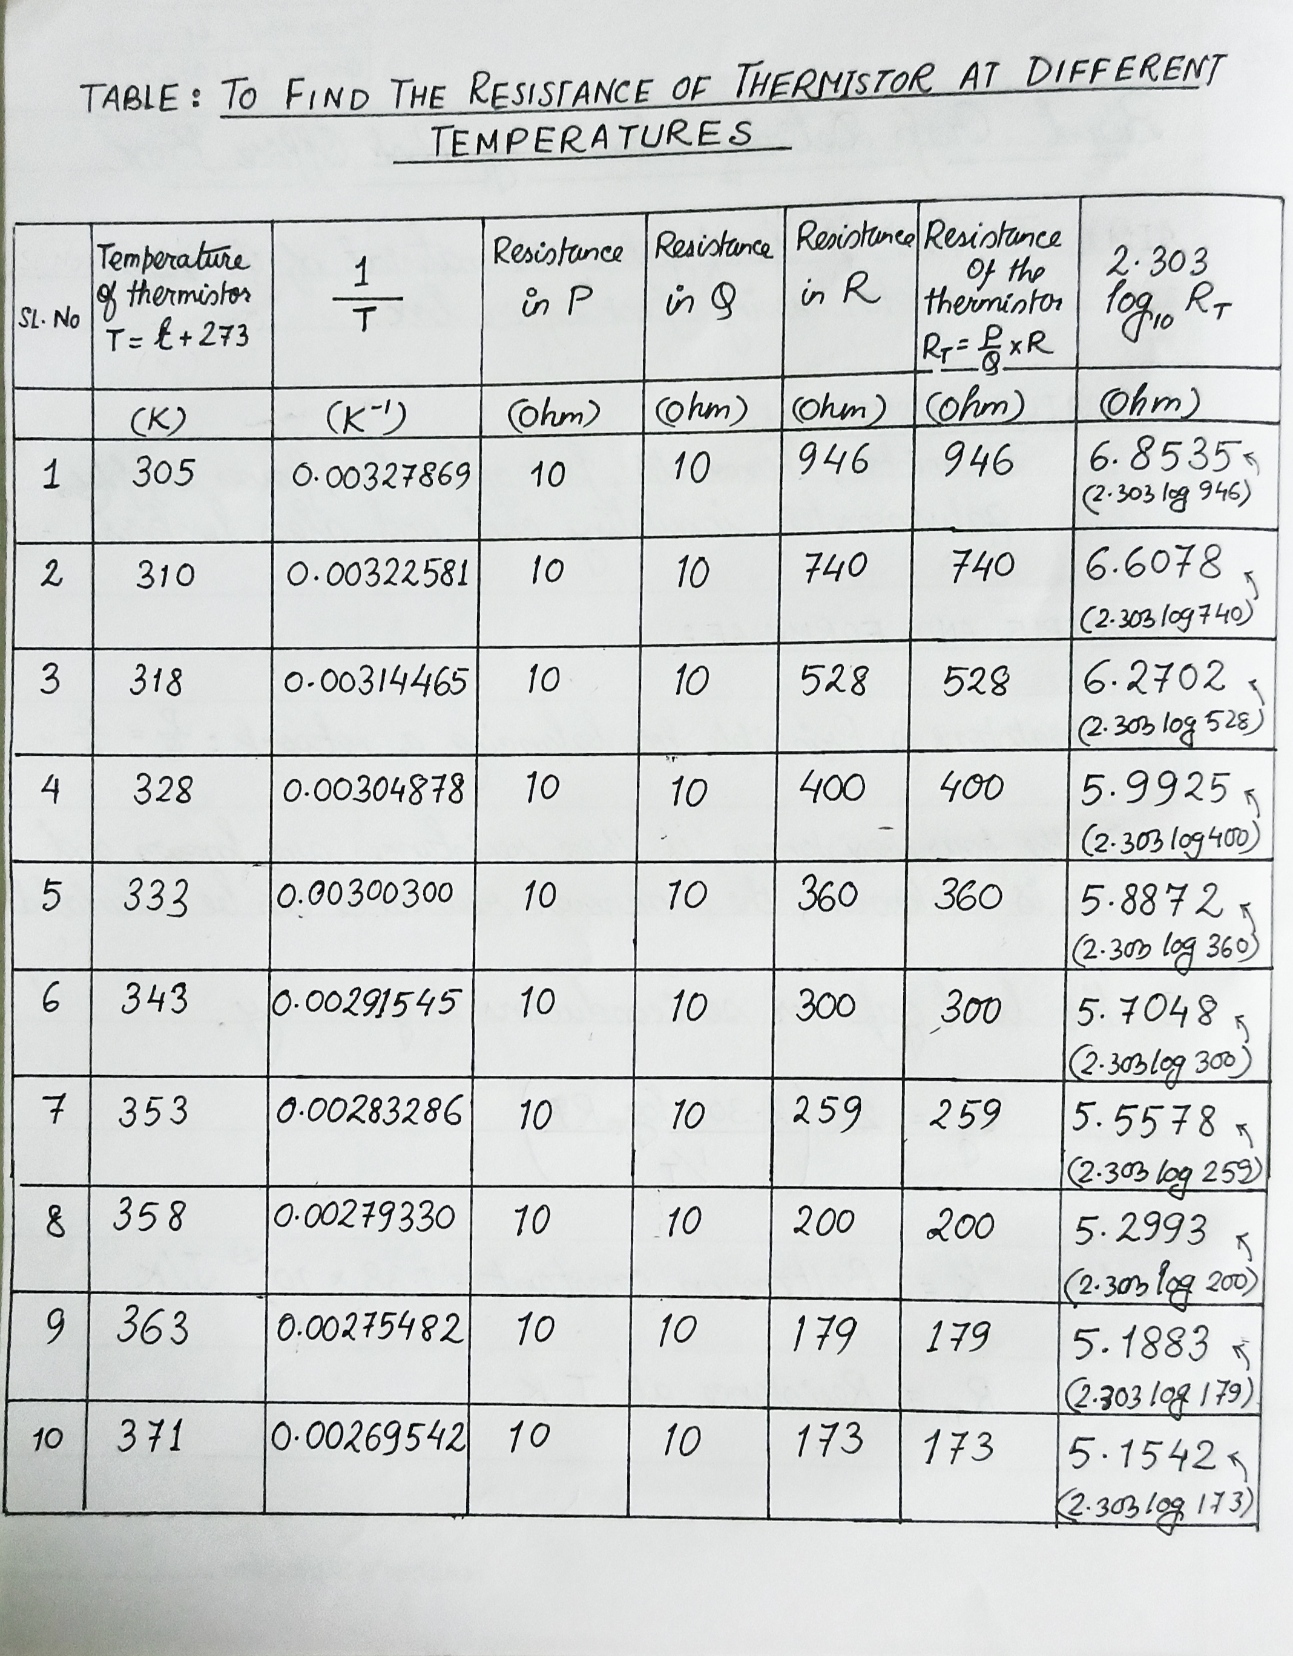 TABLE: TO FIND THE RESISTANCE OF THERMISTOR AT DIFFERENT
TEMPERATURES
SL. No
Temperature
of thermistor
T = t + 273
1
T
Resistance
in P
Resistance
in Q
Resistance
in R
Resistance
Of the
thermistor
R_T = P/Q × R
2.303
log₁₀ R_T
(K)
(K⁻¹)
(Ohm)
(Ohm)
(Ohm)
(Ohm)
(Ohm)
1 305 0.00327869 10 10 946 946 6.8535
(2.303 log 946)
2 310 0.00322581 10 10 740 740 6.6078
(2.303 log 740)
3 318 0.00314465 10 10 528 528 6.2702
(2.303 log 528)
4 328 0.00304878 10 10 400 400 5.9925
(2.303 log 400)
5 333 0.00300300 10 10 360 360 5.8872
(2.303 log 360)
6 343 0.00291545 10 10 300 300 5.7048
(2.303 log 300)
7 353 0.00283286 10 10 259 259 5.5578
(2.303 log 259)
8 358 0.00279330 10 10 200 200 5.2993
(2.303 log 200)
9 363 0.00275482 10 10 179 179 5.1883
(2.303 log 179)
10 371 0.00269542 10 10 173 173 5.1542
(2.303 log 173)